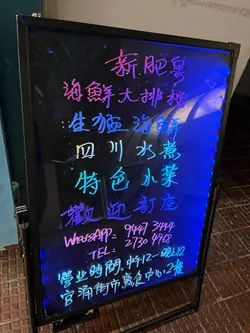 新肥粤
海鮮大排檔
生猛海鮮
四川水煮
特色小菜
歡迎訂座
WhatsApp= 9447 3444
TEL: 2730 4968
營業時間,中午12-晚12
官涌街市熟食中心2樓